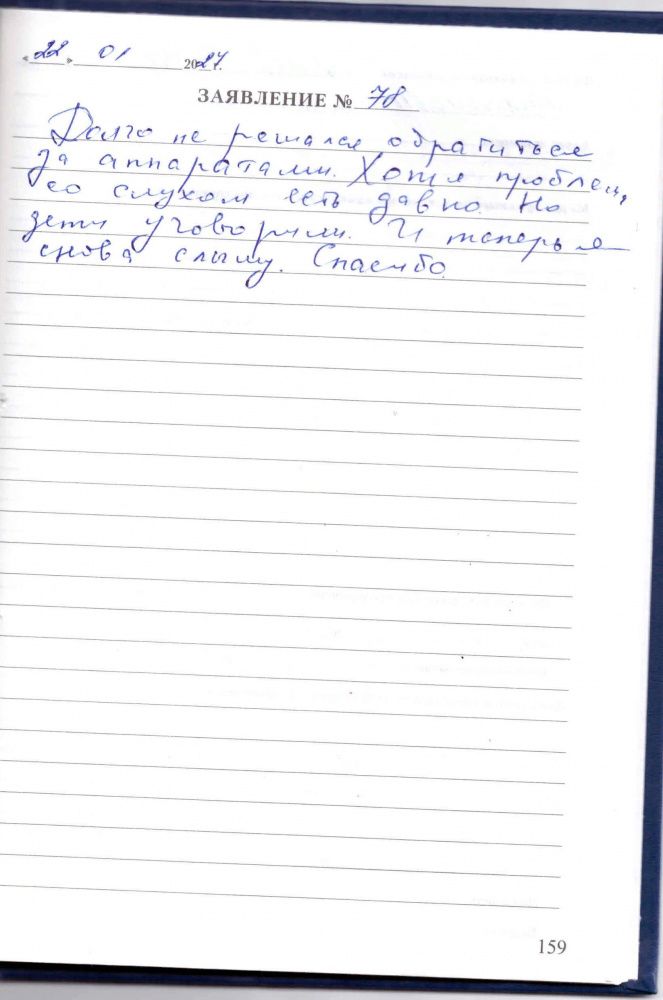 «22» 01 2024.
ЗАЯВЛЕНИЕ № 78
Долго не решался обратиться
за аппаратами. Хотя проблемы
со слухом есть давно. Но
дети уговорили. И теперь я
снова слышу. Спасибо.
159